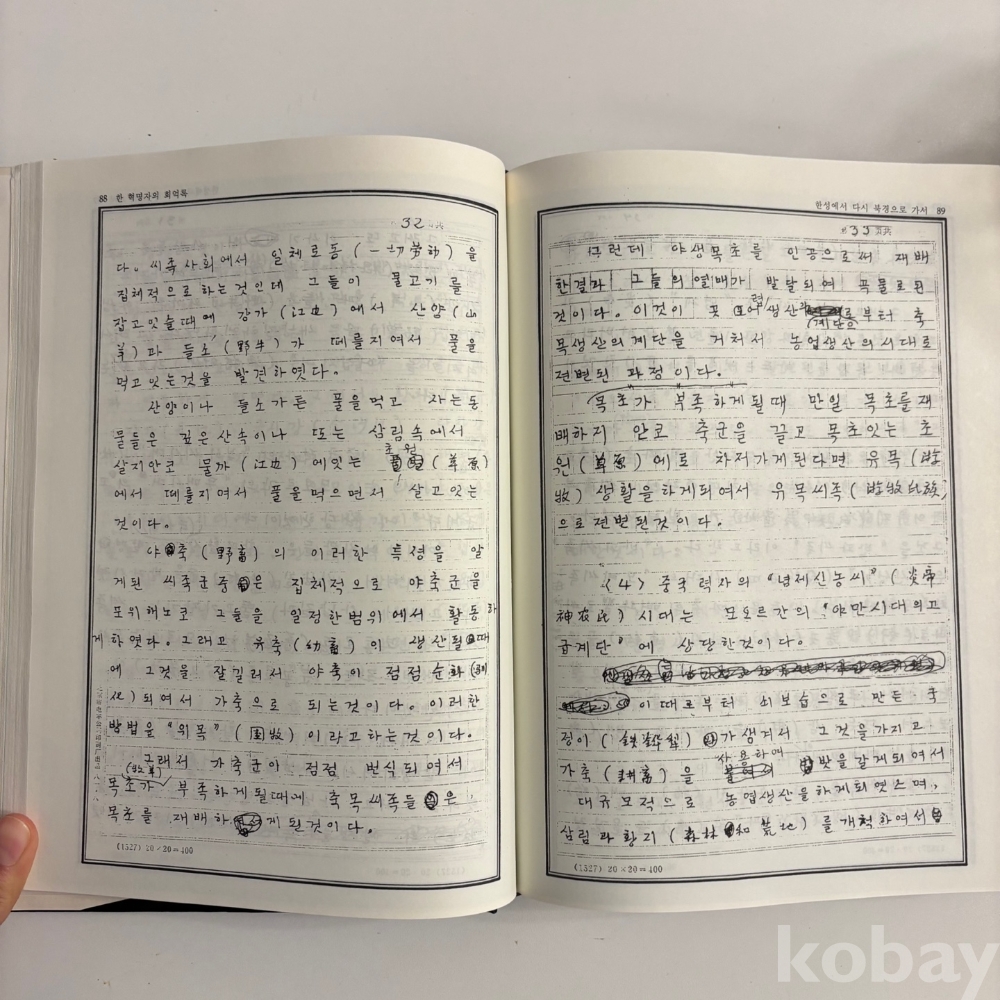 88 한 혁명자의 회억록
32
다. 씨족사회에서 일체로동 (一切劳动) 을
집체적으로하는것인데 그들이 물고기를
잡고잇슬때에 강가 (江边) 에서 산양 (山
羊) 과 들소 (野牛) 가 떼를지여서 풀을
먹고잇는것을 발견하엿다.
산양이나 들소가튼 풀을먹고 사는동
물들은 깊은산속이나 또는 삼림속에서
초원
살지안코 물까 (江边) 에잇는 (草原)
에서 떼를지여서 풀을먹으면서 살고잇는
것이다.
야축 (野畜) 의 이러한 특성을 알
게된 씨족군중은 집체적으로 야축군을
포위해노코 그들을 일정한범위에서 활동하
게하엿다. 그래고 유축 (幼畜) 의 생산될때
에 그것을 잘길러서 야축이 점점순화
化) 되여서 가축으로 되는것이다. 이러한
방법을 "위목" (囲牧) 이라고하는것이다.
그래서 가축군이 점점 번식되여서
(牧草)
목초가 부족하게될때에 축목씨족들은
목초를 재배하게된것이다.
(1527) 20×20=400
한성에서 다시 북경으로 가서 89
33
그런데 야생목초를 인공으로써 재배
한결과 그들의열매가 발달되여 곡물로된
것이다. 이것이 꼿 생산 로부터 축
계단으
목생산의계단을 거처서 농업생산의시대로
전변된 과정이다.
목초가 부족하게될때 만일 목초를재
배하지 안코 축군을 끌고 목초잇는 초
원 (草原) 에로 차저가게된다면 유목 (
牧) 생활을하게되여서 유목씨족 (游牧氏族)
으로전변된것이다.
(4) 중국력자의 "념제신농씨" (炎帝
神农氏) 시대는 모오르간의 "야만시대의고
급계단" 에 상당한것이다.
이때로부터 쇠보습으로 만든
정이 가생겨서 그것을가지고
사용하여
가축 (畜) 을 밭을갈게되여서
대규모적으로 농업생산을하게되엿스며,
삼림과황지 (森林和荒地) 를개척하여서
(1527) 20×20=400
kobay